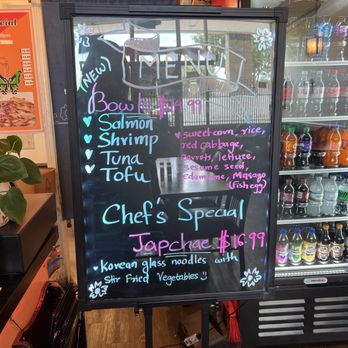 MENU
(NEW)
Bowl $14.99
Salmon
Shrimp
Tuna
Tofu
sweetcorn, rice,
red cabbage,
carrots, lettuce,
sesame seed,
Edamame, Masago
(fish egg)
Chef's Special
Japchae $16.99
Korean glass noodles with
Stir Fried Vegetables